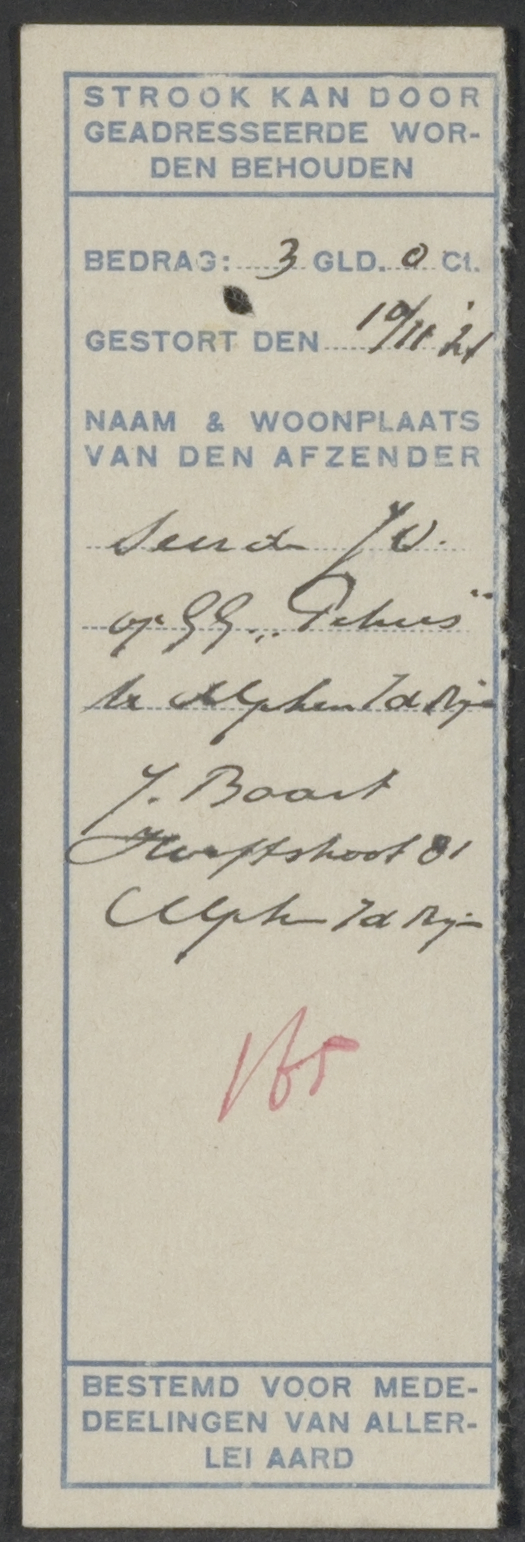 STROOK KAN DOOR
GEADRESSEERDE WOR-
DEN BEHOUDEN
BEDRAG: 3 GLD. 0 Ct.
GESTORT DEN 10/11 '21
NAAM & WOONPLAATS
VAN DEN AFZENDER
J W.
op GG „
te Alphen / d Rijn
J. Baart
81
Alphen / d Rijn
165
BESTEMD VOOR MEDE-
DEELINGEN VAN ALLER-
LEI AARD